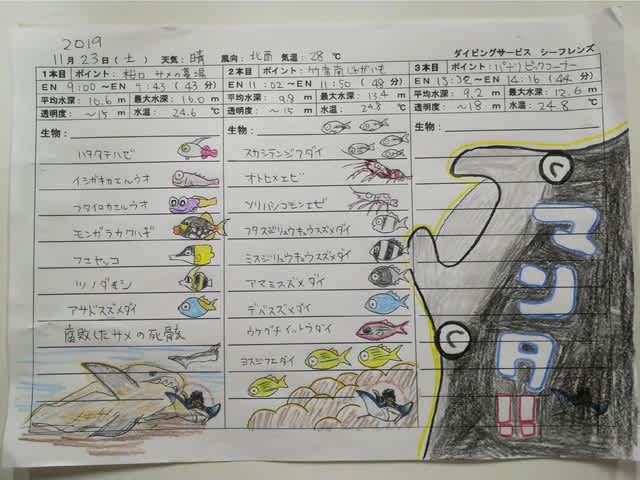 2019
11月23日(土) 天気:晴 風向:北西 気温:28℃ ダイビングサービス シーフレンズ
1本目 ポイント:桜口 サメの墓場
EN 9:00〜 9:43 (43分)
平均水深:10.6m 最大水深:16.0m
透明度:〜15m 水温:24.6℃
生物:
ハタタテハゼ
イシガキカエルウオ
フタイロカエルウオ
モンガラカワハギ
フエヤッコ
ツノダキシ
アサドスズメダイ
腐敗したサメの死骸
2本目 ポイント:竹富南じゃがいも
EN 11:02〜 11:50 (48分)
平均水深:9.8m 最大水深:13.4m
透明度:〜15m 水温:24.8℃
生物:
スカシテンジクダイ
オトヒメエビ
ソリハシコモンエビ
フタスジリュウキュウスズメダイ
ミスジリュウキュウスズメダイ
アマミスズメダイ
デバスズメダイ
ウケグチイットウダイ
ヨスジフエダイ
3本目 ポイント:パナリビッグコーナー
EN 13:32〜 14:16 (44分)
平均水深:9.2m 最大水深:12.6m
透明度:〜18m 水温:24.8℃
生物:
マンタ!!